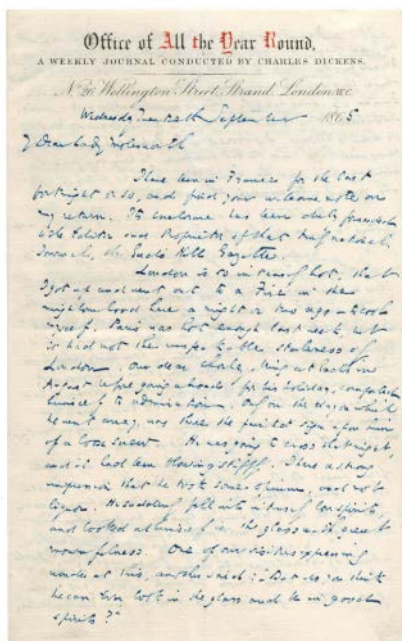 Office of All the Year Round,
A WEEKLY JOURNAL CONDUCTED BY CHARLES DICKENS.
No. 26 Wellington Street, Strand, London W.C.
Wednesday Twentieth September 1865
My Dear Lady Molesworth
I have been in France for the last
fortnight or so, and find your welcome note on
my return. Its enclosure has been duly forwarded
to the Editor and Proprietor of that
Journal, the Gazette.
London is so intensely hot, that
I got up and went out to a Fire in the
neighbourhood here a night or two ago to cool
myself. Paris was hot enough last week, but
it had not the staleness of
London. Our dear Charles, being with us in
August before going abroad for his holiday,
himself to admiration. Only on the day on which
he went away, was there the faintest sign upon him
of a loose screw. He was going to cross that night,
and it had been blowing stiff. I have a strong
impression that he took some opinion, and not
liquor. He suddenly fell into intensely low spirits,
and looked at himself in the glass with great
mournfulness. One of our visitors expressing
wonder at this, another said: "But do you think
he can ever look in the glass and be in good
spirits?"